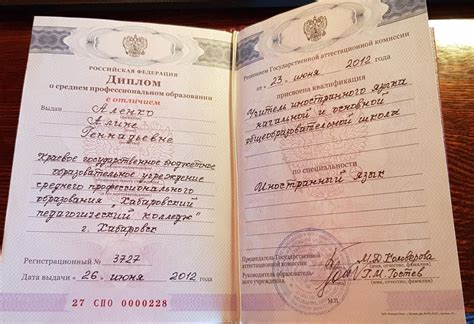 РОССИЙСКАЯ ФЕДЕРАЦИЯ
Диплом
о среднем профессиональном образовании
с отличием
Выдан Аленко
Алине
Геннадьевне
Краевое государственное бюджетное
образовательное учреждение
среднего профессионального
образования „Хабаровский
педагогический колледж"
г. Хабаровск
Регистрационный № 3727
Дата выдачи « 26 » июня 2012 г.
27 СПО 0000228
Решением Государственной аттестационной комиссии
от « 25 » июня 2012 г.
присвоена квалификация
Учитель иностранного языка
начальной и основной
общеобразовательной школы
по специальности
Иностранный язык
Председатель Государственной
аттестационной комиссии
Руководитель образовательного
учреждения
Г.М. Гостев
М.П.